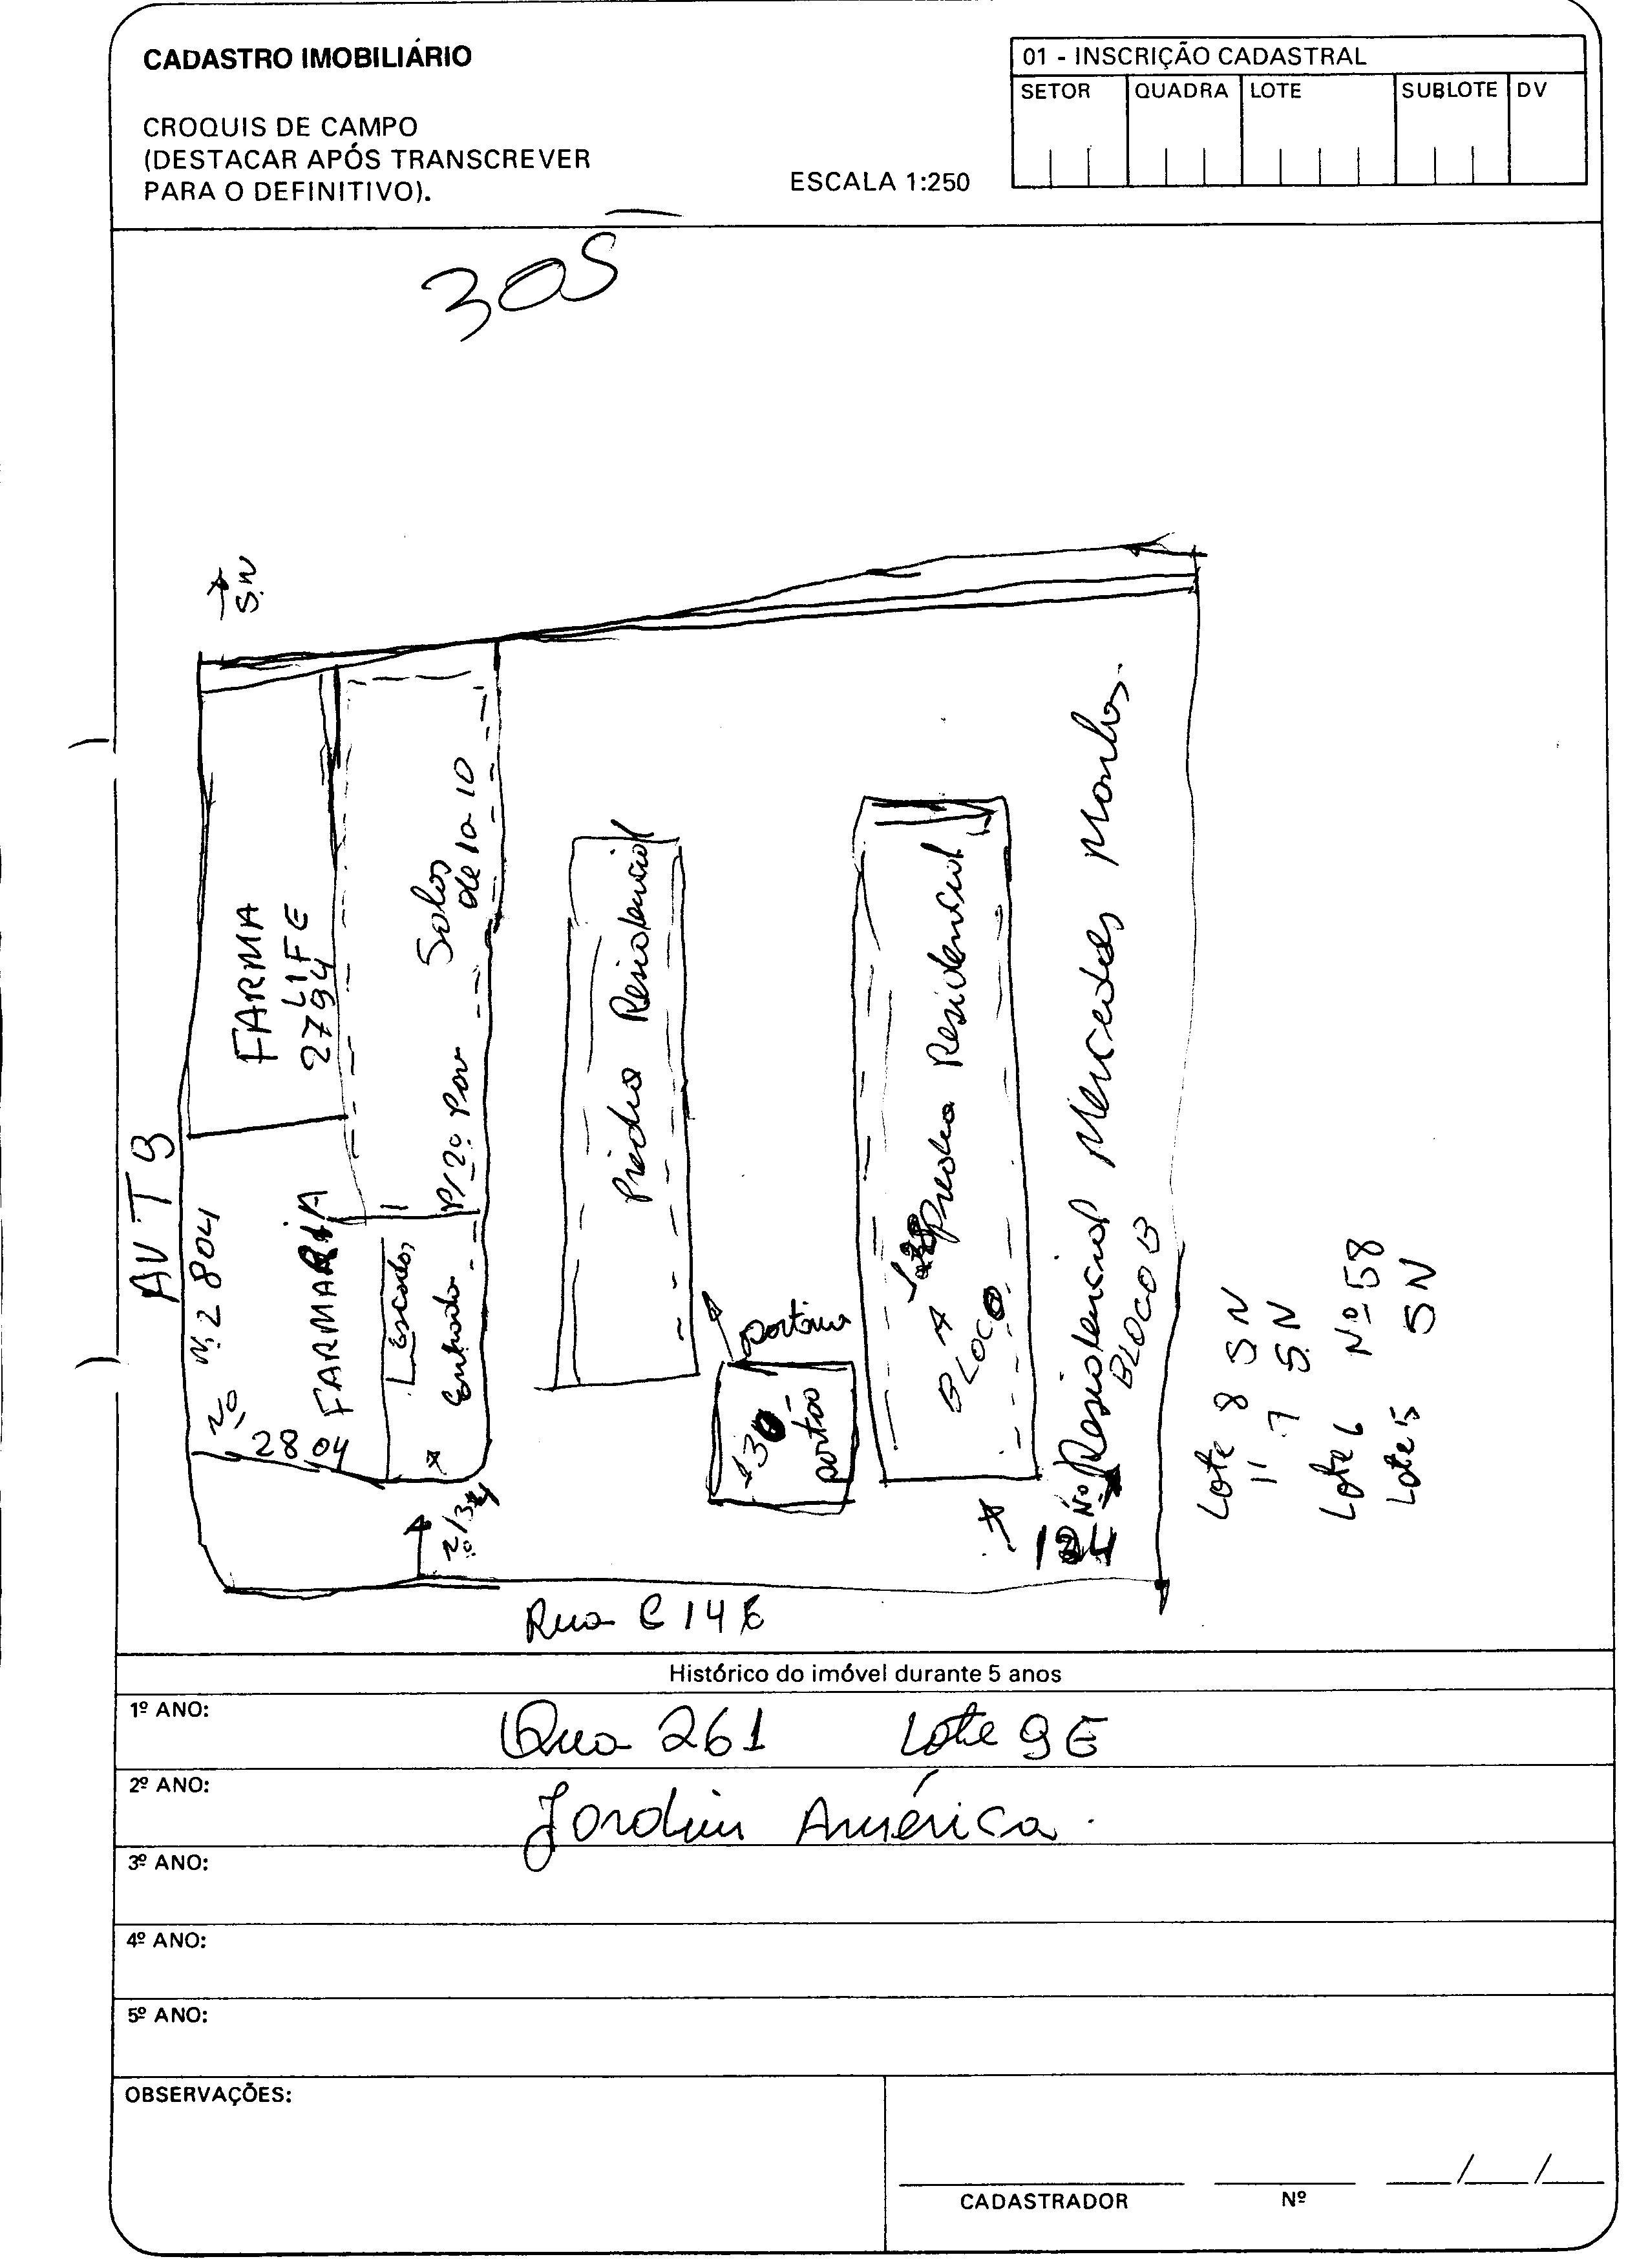 CADASTRO IMOBILIÁRIO
01 - INSCRIÇÃO CADASTRAL
SETOR QUADRA LOTE SUBLOTE DV
CROQUIS DE CAMPO
(DESTACAR APÓS TRANSCREVER
PARA O DEFINITIVO).
ESCALA 1:250
305
S.N
AV T9
FARMA
LIFE
2794
Nº 2804
FARMARIA
Nº
2804
Salas
de 1 a 10
P/2º Pav
Escada
Entrada
Prédio Residencial
Predio Residencial
A
BLOCO
portaria
portão
Residencial Mercedes
BLOCO B
Nº
124
Lote 8 SN
" 7 SN
Lote 6 Nº 58
Lote 5 SN
Rua C 148
Histórico do imóvel durante 5 anos
1º ANO:
Qua 261 Lote 9E
2º ANO:
Jardim América.
3º ANO:
4º ANO:
5º ANO:
OBSERVAÇÕES:
CADASTRADOR
Nº